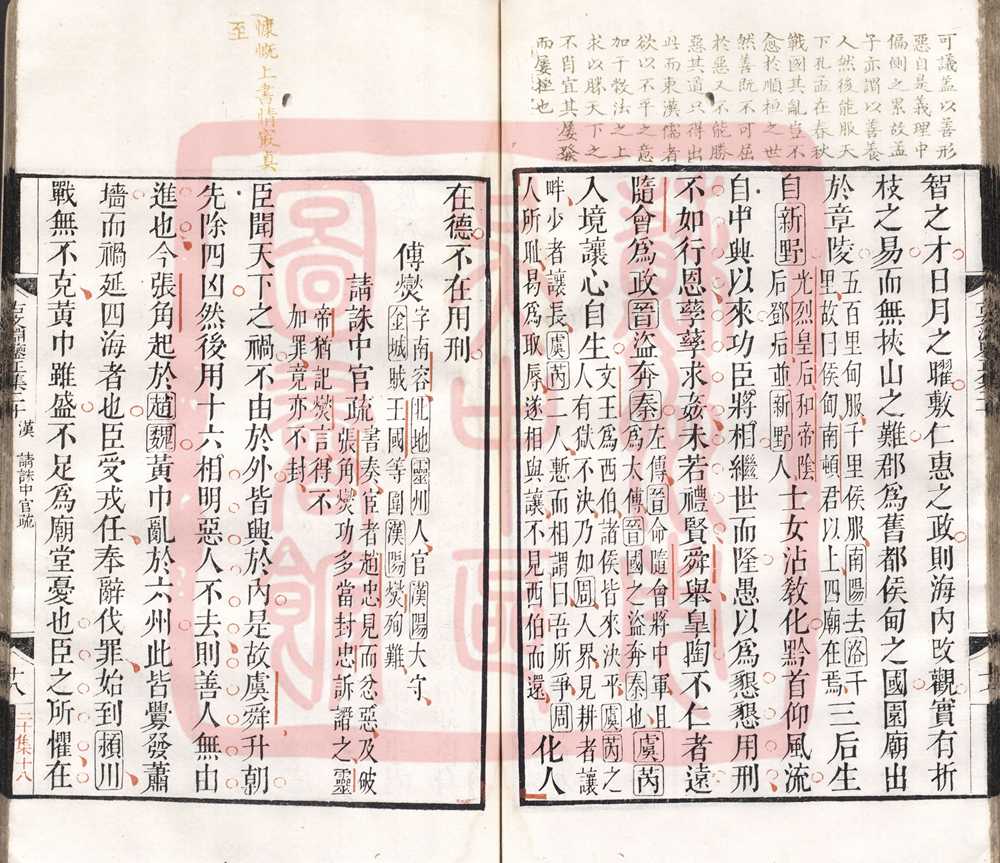 可議蓋以善形
惡自是義理中
偏側之累故孟
子亦謂以善養
人然後能服天
下孔孟在春秋
戰國其亂豈不
愈於順桓之世
然善既不可屈
於惡又不能勝
惡其道只得出
此而東漢儒者
欲以不平之意
加于敎法之上
求以勝天下之
不肖宜其屢發
而屢挫也
智之才日月之曜敷仁惠之政則海內改觀實有折
枝之易而無挾山之難郡爲舊都侯甸之國園廟出
於章陵五百里甸服千里侯服南陽去洛千
里故曰侯甸南頓君以上四廟在焉三后生
自新野光烈皇后和帝陰
后鄧后並新野人士女沾敎化黔首仰風流
自中興以來功臣將相繼世而隆愚以爲懇懇用刑
不如行恩孳孳求姦未若禮賢舜舉皐陶不仁者遠
隨會爲政晉盜奔秦左傳晉命隨會將中軍且
爲太傅晉國之盜奔秦也虞芮
入境讓心自生文王爲西伯諸侯皆來決平虞芮之
人有獄不決乃如周入界見耕者讓
畔少者讓長虞芮二人慙而相謂曰吾所爭周
人所恥曷爲取辱遂相與讓不見西伯而還化人
在德不在用刑
傅燮字南容北地靈州人官漢陽大守
金城賊王國等圍漢陽燮殉難
請誅中官疏書奏臣者趙忠見而忿惡及破
張角燮功多當封忠訴譖之靈
帝猶記燮言得不
加罪竟亦不封
臣聞天下之禍不由於外皆興於內是故虞舜升朝
先除四凶然後用十六相明惡人不去則善人無由
進也今張角起於趙魏黃巾亂於六州此皆釁發蕭
墻而禍延四海者也臣受戎任奉辭伐罪始到潁川
戰無不克黃巾雖盛不足爲廟堂憂也臣之所懼在
慷慨上書情寂真
至
漢 請誅中官疏
十八
二集十八